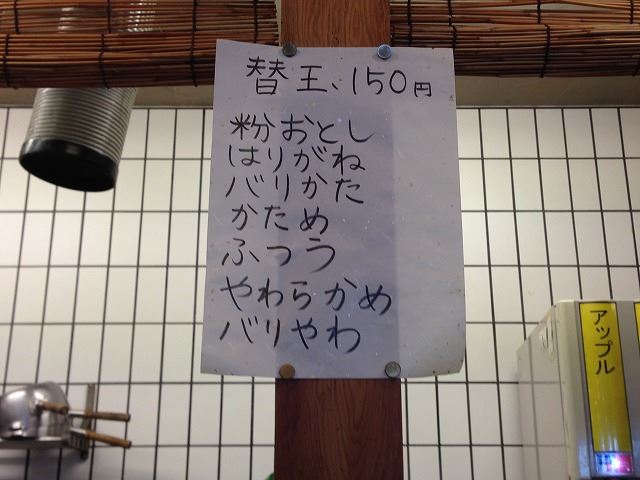 替王、150円
粉おとし
はりがね
バリかた
かため
ふつう
やわらかめ
バリやわ
アップル